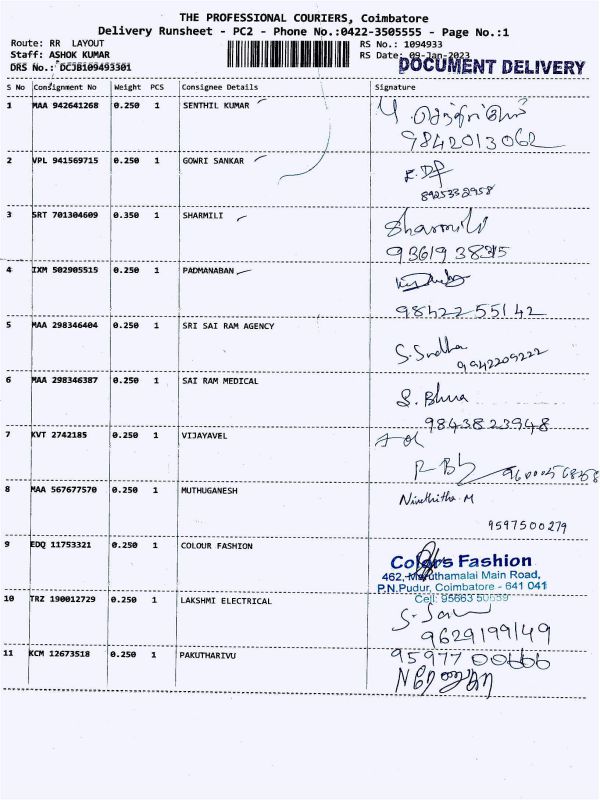 THE PROFESSIONAL COURIERS, Coimbatore
Delivery Runsheet - PC2 - Phone No.:0422-3505555 - Page No.:1
Route: RR LAYOUT RS No.: 1094933
Staff: ASHOK KUMAR RS Date: 09-Jan-2023
DRS No.: DCJB109493301 DOCUMENT DELIVERY
S No Consignment No Weight PCS Consignee Details Signature
1 MAA 942641268 0.250 1 SENTHIL KUMAR
9842013062
2 VPL 941569715 0.250 1 GOWRI SANKAR
8925332958
3 SRT 701304609 0.350 1 SHARMILI Sharmili
93619 38315
4 IXM 502905515 0.250 1 PADMANABAN
98422 55142
5 MAA 298346404 0.250 1 SRI SAI RAM AGENCY
S. Sudha 9942209222
6 MAA 298346387 0.250 1 SAI RAM MEDICAL
9843823948
7 KVT 2742185 0.250 1 VIJAYAVEL
8 MAA 567677570 0.250 1 MUTHUGANESH Nivethitha. M
9597500279
9 EDQ 11753321 0.250 1 COLOUR FASHION
Colors Fashion
462, Maruthamalai Main Road,
P.N.Pudur, Coimbatore - 641 041
Cell: 95663
10 TRZ 190012729 0.250 1 LAKSHMI ELECTRICAL
9629199149
11 KCM 12673518 0.250 1 PAKUTHARIVU